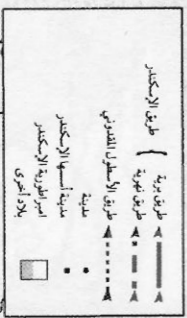 طريق الإسكندر
طريق برية
طريق نهرية
طريق الأسطول المقدوني
مدينة
مدينة أسسها الإسكندر
امبراطورية الإسكندر
بلاد أخرى